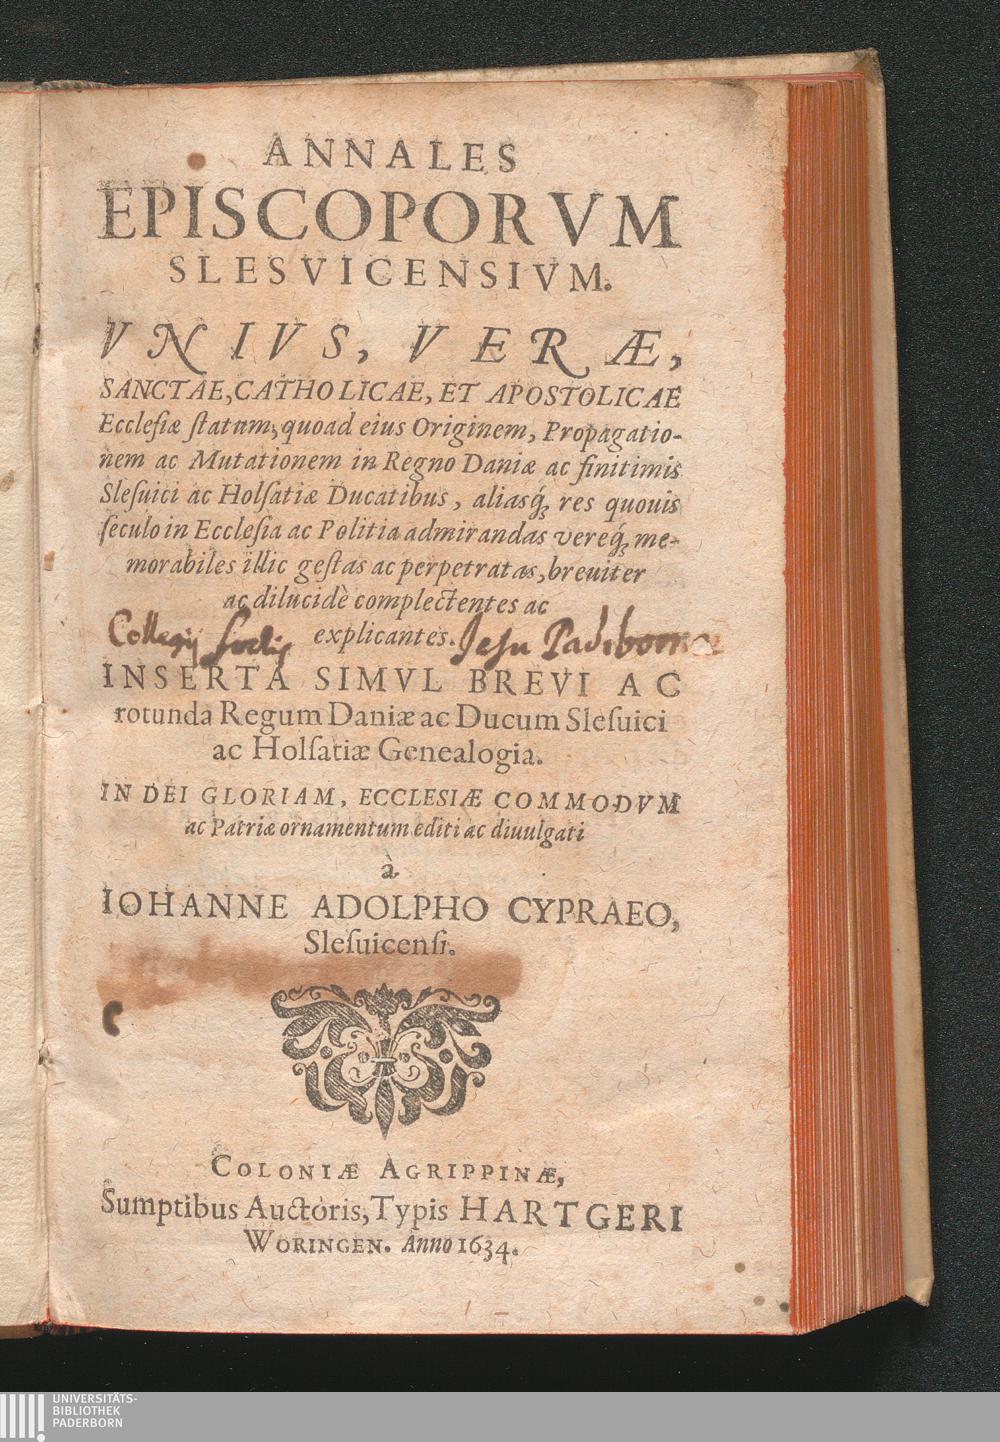 ANNALES
EPISCOPORVM
SLESVICENSIVM.
VNIVS, VERÆ,
SANCTAE, CATHOLICAE, ET APOSTOLICAE
Eccleſiæ ſtatum, quoad eius Originem, Propagatio-
nem ac Mutationem in Regno Daniæ ac finitimis
Sleſuici ac Holſatiæ Ducatibus, aliasq́; res quouis
ſeculo in Eccleſia ac Politia admirandas vereq́; me-
morabiles illic geſtas ac perpetratas, breuiter
ac dilucidè complectentes ac
explicantes.
Collegij Societis Jesu Padibornæ
INSERTA SIMVL BREVI AC
rotunda Regum Daniæ ac Ducum Sleſuici
ac Holſatiæ Genealogia.
IN DEI GLORIAM, ECCLESIÆ COMMODVM
ac Patriæ ornamentum editi ac diuulgati
à
IOHANNE ADOLPHO CYPRAEO,
Sleſuicenſi.
COLONIÆ AGRIPPINÆ,
Sumptibus Auctoris, Typis HARTGERI
WORINGEN. Anno 1634.
UNIVERSITÄTS-
BIBLIOTHEK
PADERBORN